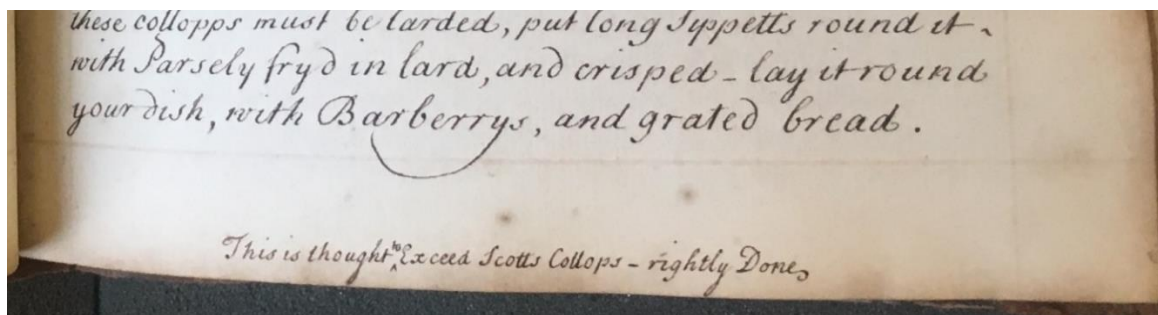 these collopps must be larded, put long Syppetts round it -
with Parsely fryd in lard, and crisped - lay it round
your dish, with Barberrys, and grated bread.
This is thought to Exceed Scotts Collops - rightly Done,